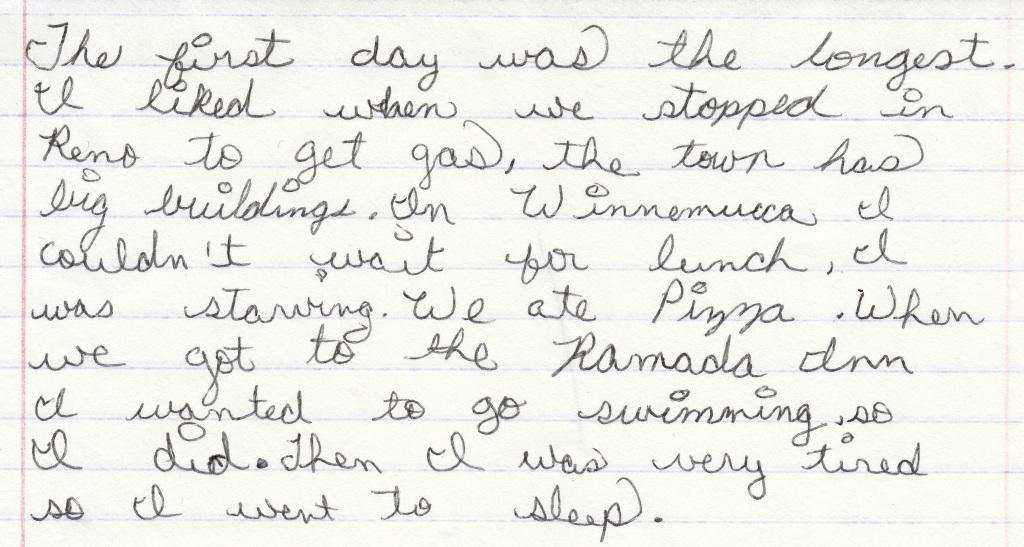 The first day was the longest.
I liked when we stopped in
Reno to get gas, the town has
big buildings. In Winnemucca I
couldn't wait for lunch, I
was starving. We ate Pizza. When
we got to the Ramada Inn
I wanted to go swimming, so
I did. Then I was very tired
so I went to sleep.